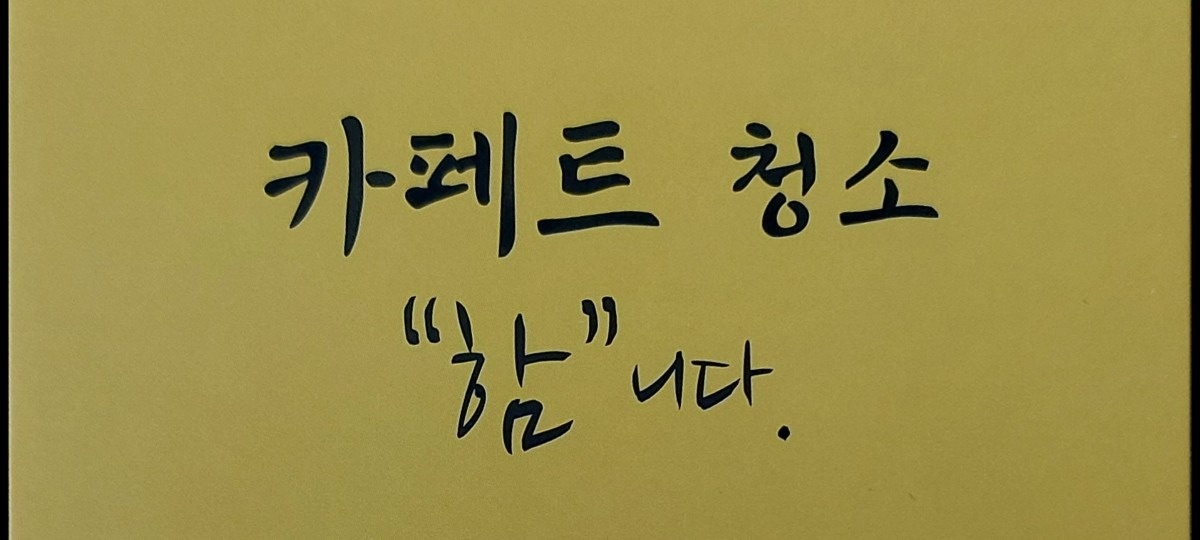 카페트 청소
“함”니다.